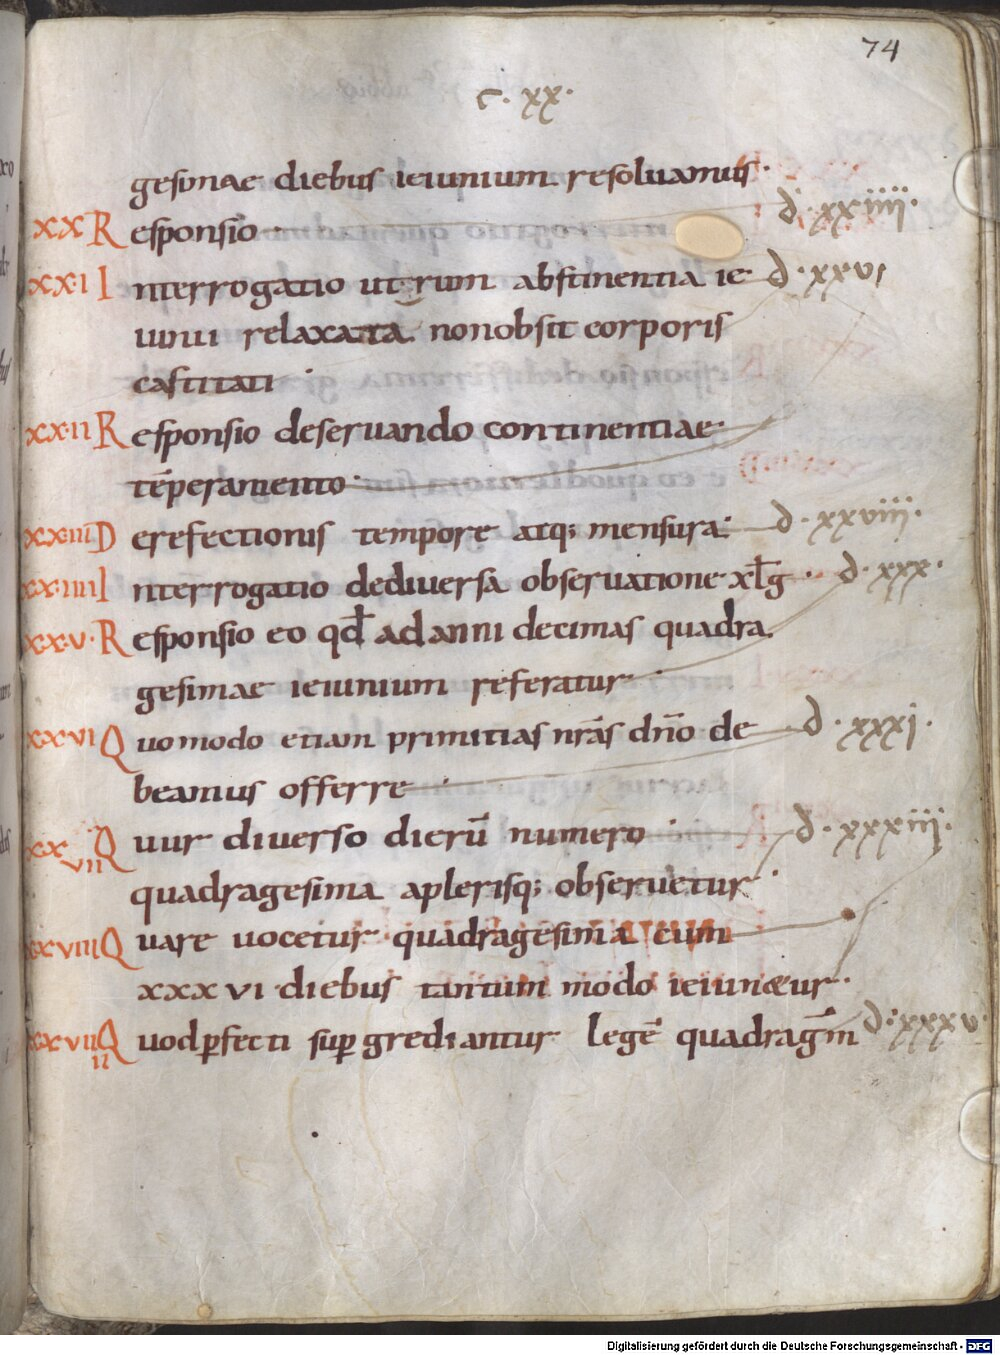 74
c. xx.
gesimae diebus ieiunium resoluamus.
xx Responsio. d. xxiiii.
xxi Interrogatio utrum abstinentia ie d. xxvi
iunii relaxata nonobsit corporis
castitati.
xxii Responsio deseruando continentiae
tēperamento.
xxiii Derefectionis tempore atq; mensura. d. xxviii.
xxiiii Interrogatio dediuersa obseruatione xlg. d. xxx.
xxv. Responsio eo qđ ad anni decimas quadra
gesimae ieiunium referatur
xxvi Quomodo etiam primitias nrās dn̄o de d. xxxi.
beamus offerre
xxvii Quur diuerso dierū numero d. xxxiii.
quadragesima aplerisq; obseruetur.
xxviii Quare uocetur quadragesima cum
xxxvi diebus tantum modo ieiunetur.
xxviiii Quod ꝑfecti suꝑgrediantur legē quadragm̄ d. xxxv.
Digitalisierung gefördert durch die Deutsche Forschungsgemeinschaft - DFG